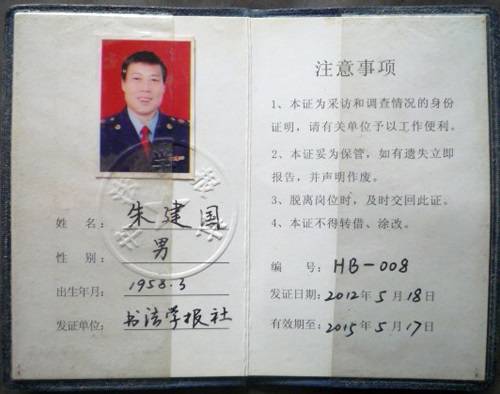 姓 名: 朱建国
性 别: 男
出生年月: 1958.3
发证单位: 书法学报社
注意事项
1、本证为采访和调查情况的身份
证明,请有关单位予以工作便利。
2、本证妥为保管,如有遗失立即
报告,并声明作废。
3、脱离岗位时,及时交回此证。
4、本证不得转借、涂改。
编 号: HB-008
发证日期: 2012年5月18日
有效期至: 2015年5月17日